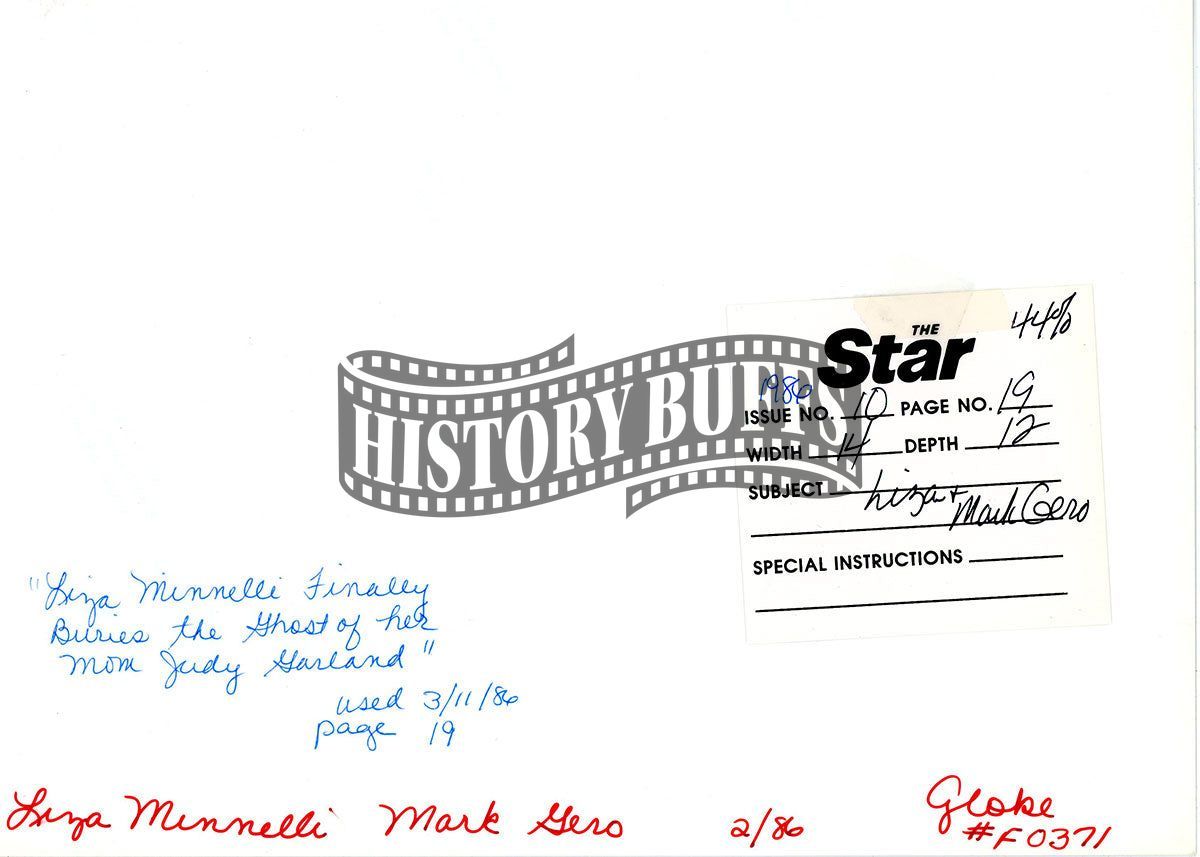 THE
Star
44%
1986
ISSUE NO. 10 PAGE NO. 19
WIDTH 14 DEPTH 12
SUBJECT Liza + Mark Gero
SPECIAL INSTRUCTIONS
HISTORY BUFFS
"Liza Minnelli Finally
Buries the Ghost of her
Mom Judy Garland"
used 3/11/86
page 19
Liza Minnelli Mark Gero 2/86 Globe
#F0371